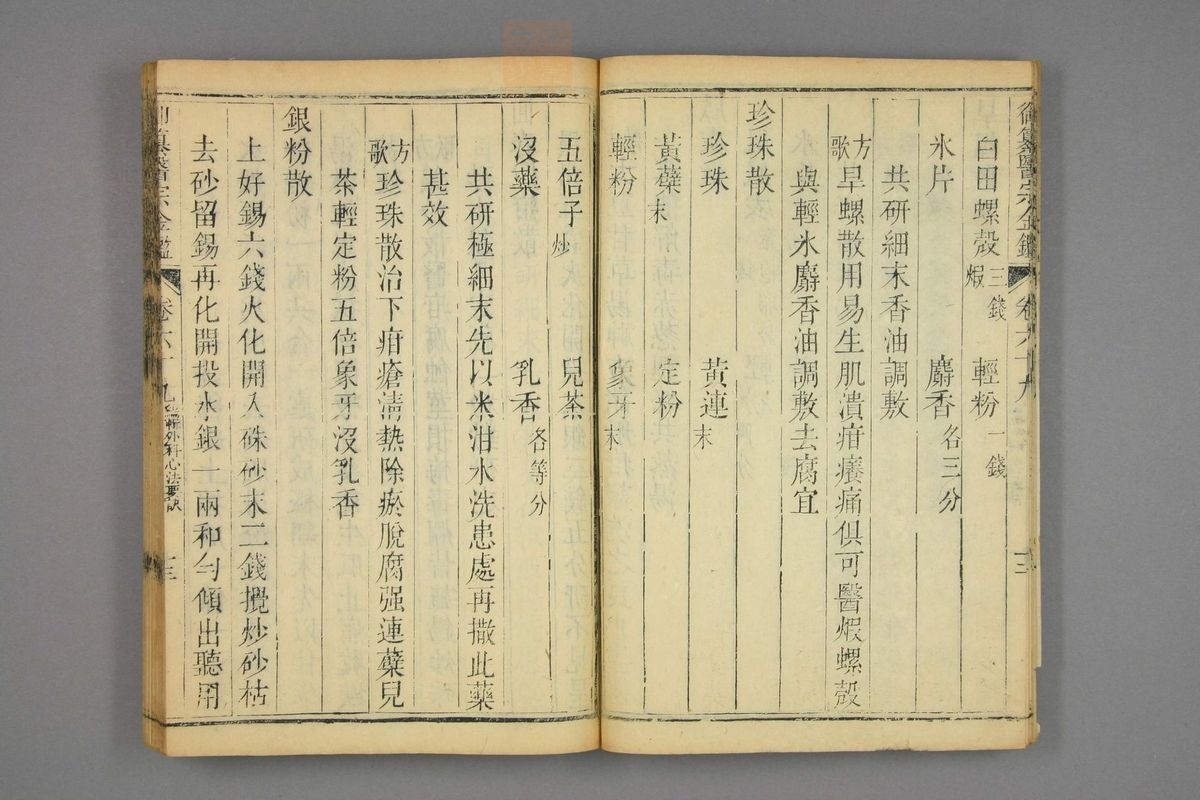 御纂醫宗金鑑 卷六十九 三
白田螺殼 三錢 煅 輕粉 一錢
氷片 麝香 各三分
共研細末香油調敷
方歌 旱螺散用易生肌潰疳癢痛俱可醫煅螺殼
與輕氷麝香油調敷去腐宜
珍珠散
珍珠 黃連 末
黃蘗 末 定粉
輕粉 象牙 末
五倍子 炒 兒茶
沒藥 乳香 各等分
共研極細末先以米泔水洗患處再撒此藥
甚效
方歌 珍珠散治下疳瘡清熱除瘀脫腐强連蘗兒
茶輕定粉五倍象牙沒乳香
銀粉散
上好錫六錢火化開入硃砂末二錢攪炒砂枯
去砂留錫再化開投水銀一兩和勻傾出聽用
纂醫宗金鑑 卷六十九 編輯外科心法要訣 三